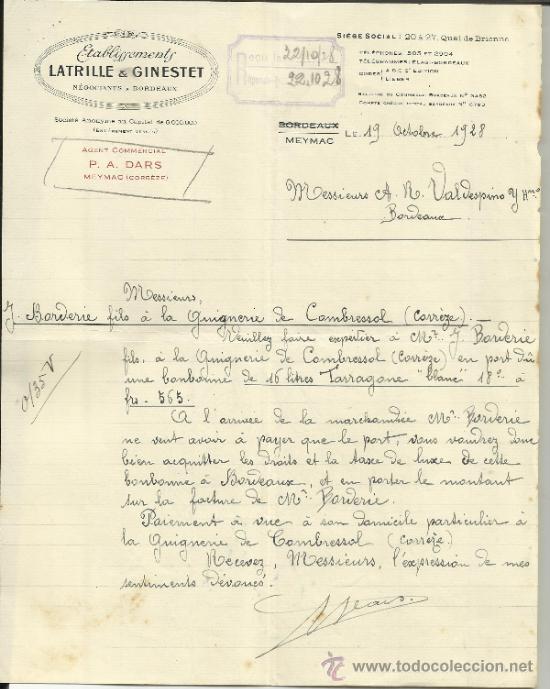 Etablissements
LATRILLE & GINESTET
NÉGOCIANTS À BORDEAUX
Société Anonyme au Capital de
(ENTIÈREMENT VERSÉ)
AGENT COMMERCIAL
P. A. DARS
MEYMAC (CORRÈZE)
REÇU LE 22/10/28
22.10.28
SIÈGE SOCIAL : 20 à 27, Quai de Brienne
TÉLÉPHONES: 505 ET 2904
TÉLÉGRAMMES: ELAGI-BORDEAUX
A B C 5e EDITION
LIEBER
BORDEAUX
MEYMAC LE 19 Octobre 1928
Messieurs A. R. Valdespino y Hmo
Bordeaux
Messieurs,
J. Borderie fils à la Guignerie de Combressol (Corrèze).
Veuillez faire expédier à Mr. J. Borderie
fils, à la Guignerie de Combressol (Corrèze) en port dû
une bonbonne de 16 litres Tarragone "blanc" 18° à
frs. 565.
0/35 V
A l'arrivée de la marchandise Mr. Borderie
ne veut avoir à payer que le port, vous voudrez donc
bien acquitter les droits et la taxe de luxe de cette
bonbonne à Bordeaux, et en porter le montant
sur la facture de Mr. Borderie.
Paiement à vue à son domicile particulier à
la Guignerie de Combressol (Corrèze)
Recevez, Messieurs, l'expression de mes
sentiments dévoués.
todocoleccion.net